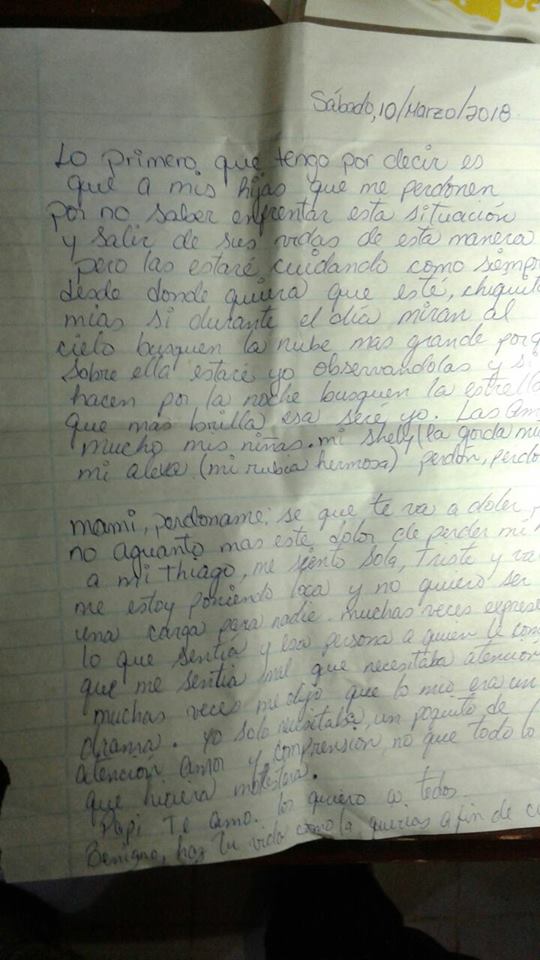 Sábado, 10/Marzo/2018
Lo primero que tengo por decir es
que a mis hijas que me perdonen
por no saber enfrentar esta situación
y salir de sus vidas de esta manera
pero las estaré cuidando como siemp
desde donde quiera que esté, chiquit
mias si durante el dia miran al
cielo busquen la nube mas grande porq
sobre ella estaré yo observandolas y si
hacen por la noche busquen la estrella
que mas brilla esa sere yo. Las am
mucho mis niñas. mi shelly (la gorda mi
mi alexa (mi rubia hermosa) perdon, perdo
mami, perdoname; se que te va a doler
no aguanto mas este dolor de perder mi
a mi Thiago, me siento sola, Triste y va
me estoy poniendo loca y no quiero ser
una carga para nadie. muchas veces expres
lo que sentia y esa persona a quien le con
que me sentia mal que necesitaba atencion
muchas veces me dijo que lo mio era un
drama. Yo solo necesitaba un poquito de
atención amor y comprension no que todo lo
que hiciera molestara.
Papi Te amo. los quiero a todos.
Benigno, haz tu vida como la querias a fin de c